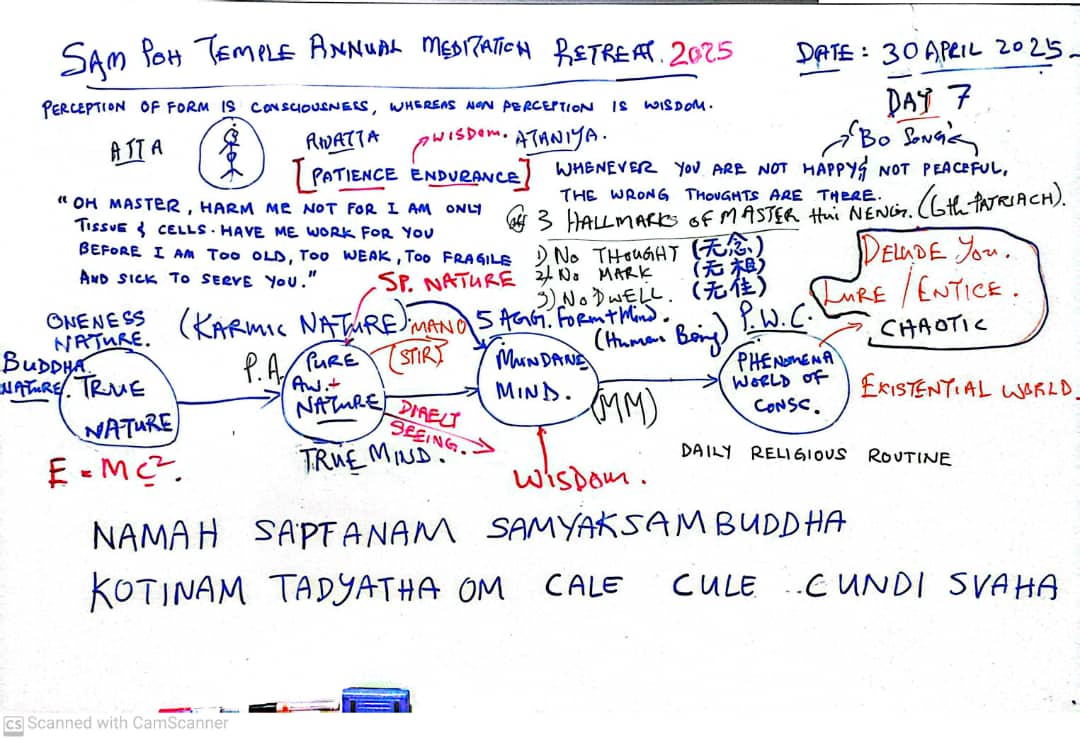 SAM POH TEMPLE ANNUAL MEDITATION RETREAT. 2025
DATE: 30 APRIL 2025
DAY 7
PERCEPTION OF FORM IS CONSCIOUSNESS, WHEREAS NON PERCEPTION IS WISDOM.
ATTA
ANATTA
WISDOM. ATANIYA.
[PATIENCE ENDURANCE]
"Bo Song"
WHENEVER YOU ARE NOT HAPPY & NOT PEACEFUL,
THE WRONG THOUGHTS ARE THERE.
"OH MASTER, HARM ME NOT FOR I AM ONLY
TISSUE & CELLS. HAVE ME WORK FOR YOU
BEFORE I AM TOO OLD, TOO WEAK, TOO FRAGILE
AND SICK TO SERVE YOU."
3 HALLMARKS OF MASTER Hui NENG. (6th PATRIACH).
1) No THOUGHT (无念)
2) No MARK (无相)
3) No DWELL. (无住)
DELUDE You.
LURE / ENTICE.
CHAOTIC
SP. NATURE
ONENESS
NATURE.
(KARMIC NATURE)
MANO
(STIR)
5 AGG. Form + Mind.
(Human Being)
P.W.C.
BUDDHA
NATURE.
TRUE
NATURE
P.A.
PURE
AW. +
NATURE
MUNDANE
MIND.
(MM)
PHENOMENA
WORLD OF
CONSC.
EXISTENTIAL WORLD
DIRECT
SEEING.
TRUE MIND.
E = MC².
WISDOM.
DAILY RELIGIOUS ROUTINE
NAMAH SAPTANAM SAMYAKSAMBUDDHA
KOTINAM TADYATHA OM CALE CULE CUNDI SVAHA
CS Scanned with CamScanner